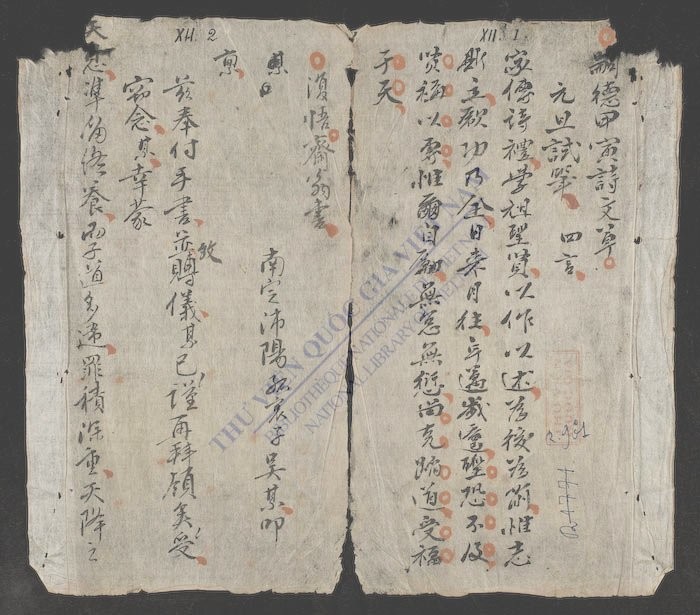 XII. 1.
嗣德甲寅詩文草
元旦試筆 四言
家傳詩禮學祖聖賢以作以述茲後茲前惟志
斯立厥功乃全日來月往年邁歲遷聖恐不及
以專惟爾自勗無怠無愆尚克蹈道受福
于天
R. 951
R.4771
XII. 2
復悟齋翁書
南定沛陽孤哀子吳某叩
稟
茲奉付手書並賻儀某已謹再拜領矣受
致
竊念某幸蒙
天恩準留洛養而子道多違罪積深重天降之
THƯ VIỆN QUỐC GIA VIỆT NAM
BIBLIOTHÈQUE NATIONALE DU VIETNAM
NATIONAL LIBRARY OF VIETNAM